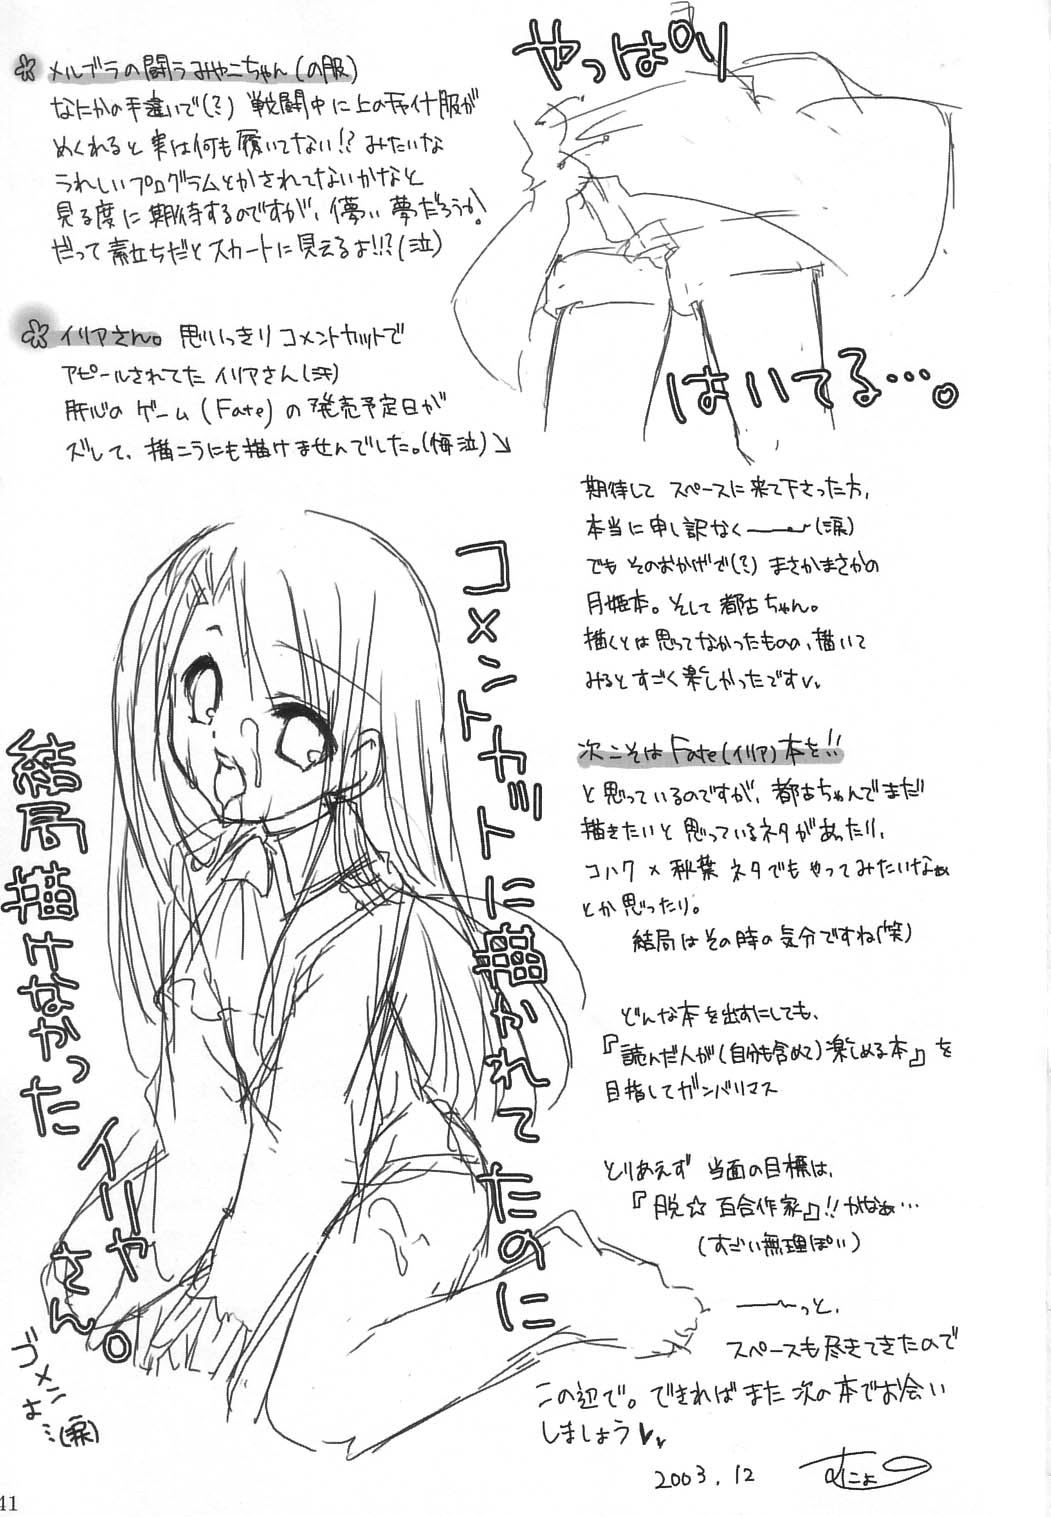 メルブラの闘うみやこちゃん(の服)
なにかの手違いで(?) 戦闘中に上のチャイナ服が
めくれると実は何も履いてない!? みたいな
うれしいプログラムとかされてないかなと
見る度に期待するのですが、儚い夢だろうか?
だって素立ちだとスカートに見えるよ!!?(泣)
やっぱり
はいてる…。
イリアさん。思いっきりコメントカットで
アピールされてたイリアさん(汗)
肝心のゲーム(Fate)の発売予定日が
ズレて、描こうにも描けませんでした。(悔泣)↘
期待してスペースに来て下さった方、
本当に申し訳なく――(涙)
でもそのおかげで(?) まさかまさかの
月姫本。そして都古ちゃん。
描くとは思ってなかったものの、描いて
みるとすごく楽しかったです
コメントカットに描かれてたのに
結局描けなかった
イリヤさん。
ゴメンよ…(涙)
次こそはFate(イリア)本を!!
と思っているのですが、都古ちゃんでまだ
描きたいと思っているネタがあったり、
コハク×秋葉ネタでもやってみたいなぁ
とか思ったり。
結局はその時の気分ですね(笑)
どんな本を出すにしても、
『読んだ人が(自分も含めて)楽しめる本』を
目指してガンバリマス
とりあえず 当面の目標は、
『脱☆百合作家』!!かなぁ…
(すごい無理ぽい)
――っと、
スペースも尽きてきたので
この辺で。できればまた次の本でお会い
しましょう
2003.12
41